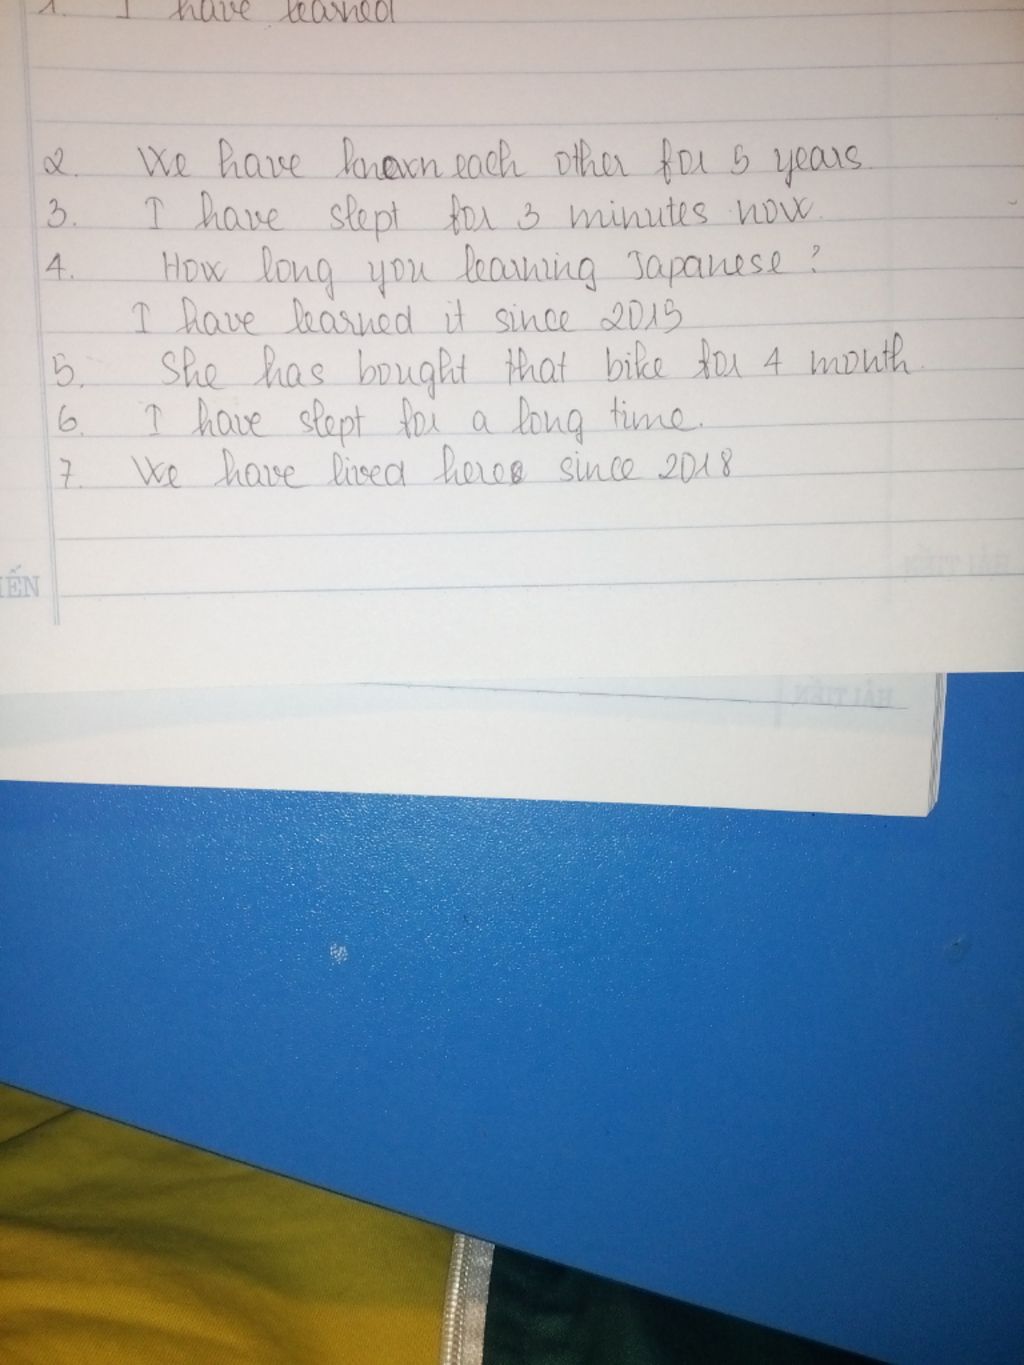 1. I have learned
2. We have known each other for 5 years.
3. I have slept for 3 minutes now.
4. How long you learning Japanese?
I have learned it since 2015
5. She has bought that bike for 4 month.
6. I have slept for a long time.
7. We have lived here since 2018
IẾN
HẢI TIẾN
HẢI TIẾN